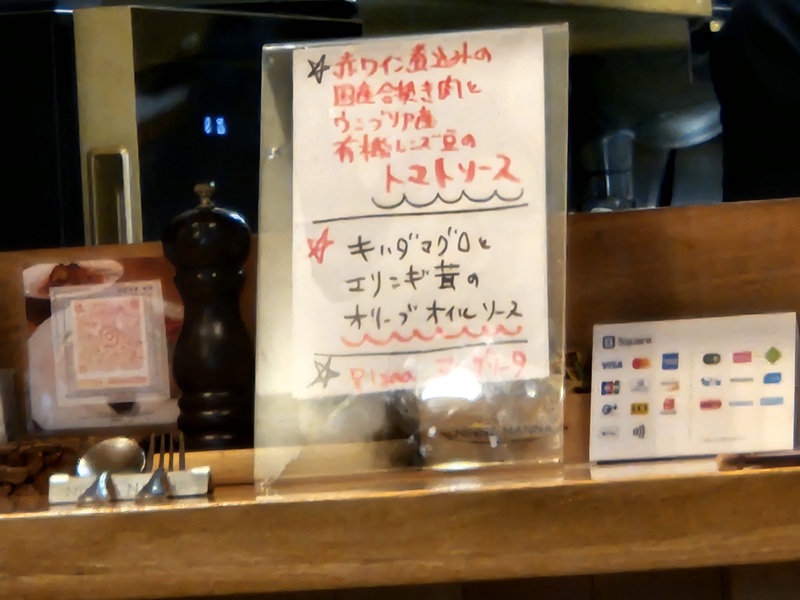 ☆赤ワイン煮込みの
国産合挽き肉と
ウンブリア産
有機レンズ豆の
トマトソース
☆キハダマグロと
エリンギ茸の
オリーブオイルソース
☆Pizza マルゲリータ
Square
VISA